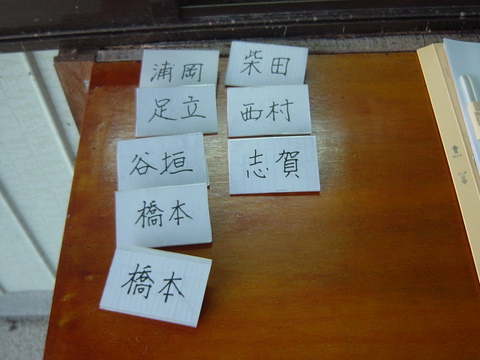 浦岡
足立
谷垣
橋本
橋本
柴田
西村
志賀